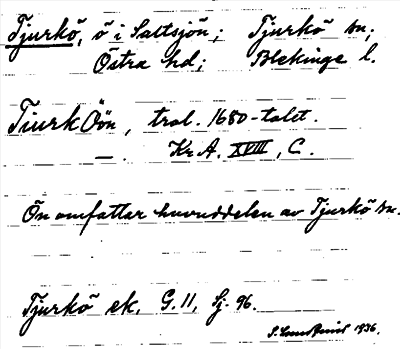 Tjurkö, ö i Saltsjön; Tjurkö sn;
Östra hd; Blekinge l.
Tiurk Öön, trol. 1680-talet.
— Kr. A. XVIII, C.
Ön omfattar huvuddelen av Tjurkö sn.
Tjurkö ek. G. 11, Sj. 96.
1936.